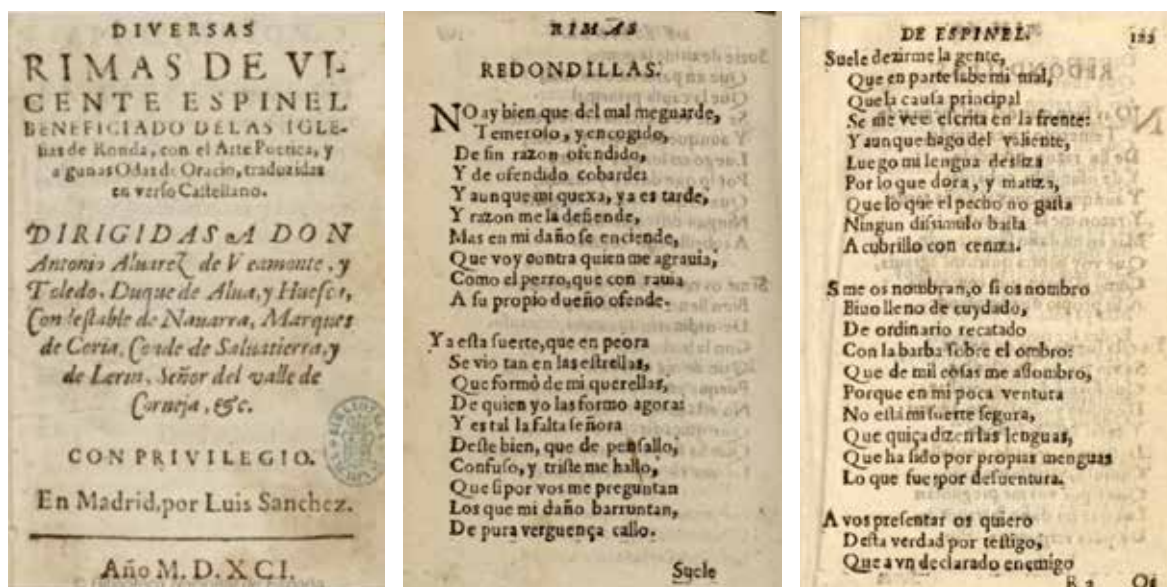 DIVERSAS
RIMAS DE VI-
CENTE ESPINEL
BENEFICIADO DE LAS IGLE-
sias de Ronda, con el Arte Poetica, y
algunas Odas de Oracio, traduzidas
en verso Castellano.
DIRIGIDAS A DON
Antonio Aluarez de Veamonte, y
Toledo, Duque de Alua, y Huesca,
Condestable de Nauarra, Marques
de Coria, Conde de Saluatierra, y
de Lerin, Señor del valle de
Corneja, &c.
CON PRIVILEGIO.
En Madrid, por Luis Sanchez.
Año M. D. XCI.
RIMAS
REDONDILLAS.
NO ay bien que del mal me guarde,
Temeroso, y encogido,
De sin razon ofendido,
Y de ofendido cobarde:
Y aunque mi quexa, ya es tarde,
Y razon me la defiende,
Mas en mi daño se enciende,
Que voy contra quien me agrauia,
Como el perro, que con rauia
A su propio dueño ofende.
Ya esta suerte, que en peora
Se vio tan en las estrellas,
Que formò de mi querellas,
De quien yo las formo agora:
Y es tal la falta señora
Deste bien, que de pensallo,
Confuso, y triste me hallo,
Que si por vos me preguntan
Los que mi daño barruntan,
De pura verguença callo.
Suele
DE ESPINEL.
Suele dezirme la gente,
Que en parte sabe mi mal,
Que la causa principal
Se me vee escrita en la frente:
Y aunque hago del valiente,
Luego mi lengua desliza
Por lo que dora, y matiza,
Que lo que el pecho no gasta
Ningun disimulo basta
A cubrillo con ceniza.
Si me os nombran, o si os nombro
Biuo lleno de cuydado,
De ordinario recatado
Con la barba sobre el ombro:
Que de mil cosas me assombro,
Porque en mi poca ventura
No està mi suerte segura,
Que quiça dizen las lenguas,
Que ha sido por propias menguas
Lo que fue por desuentura.
A vos presentar os quiero
Desta verdad por testigo,
Que aun declarado enemigo
R 2 Os